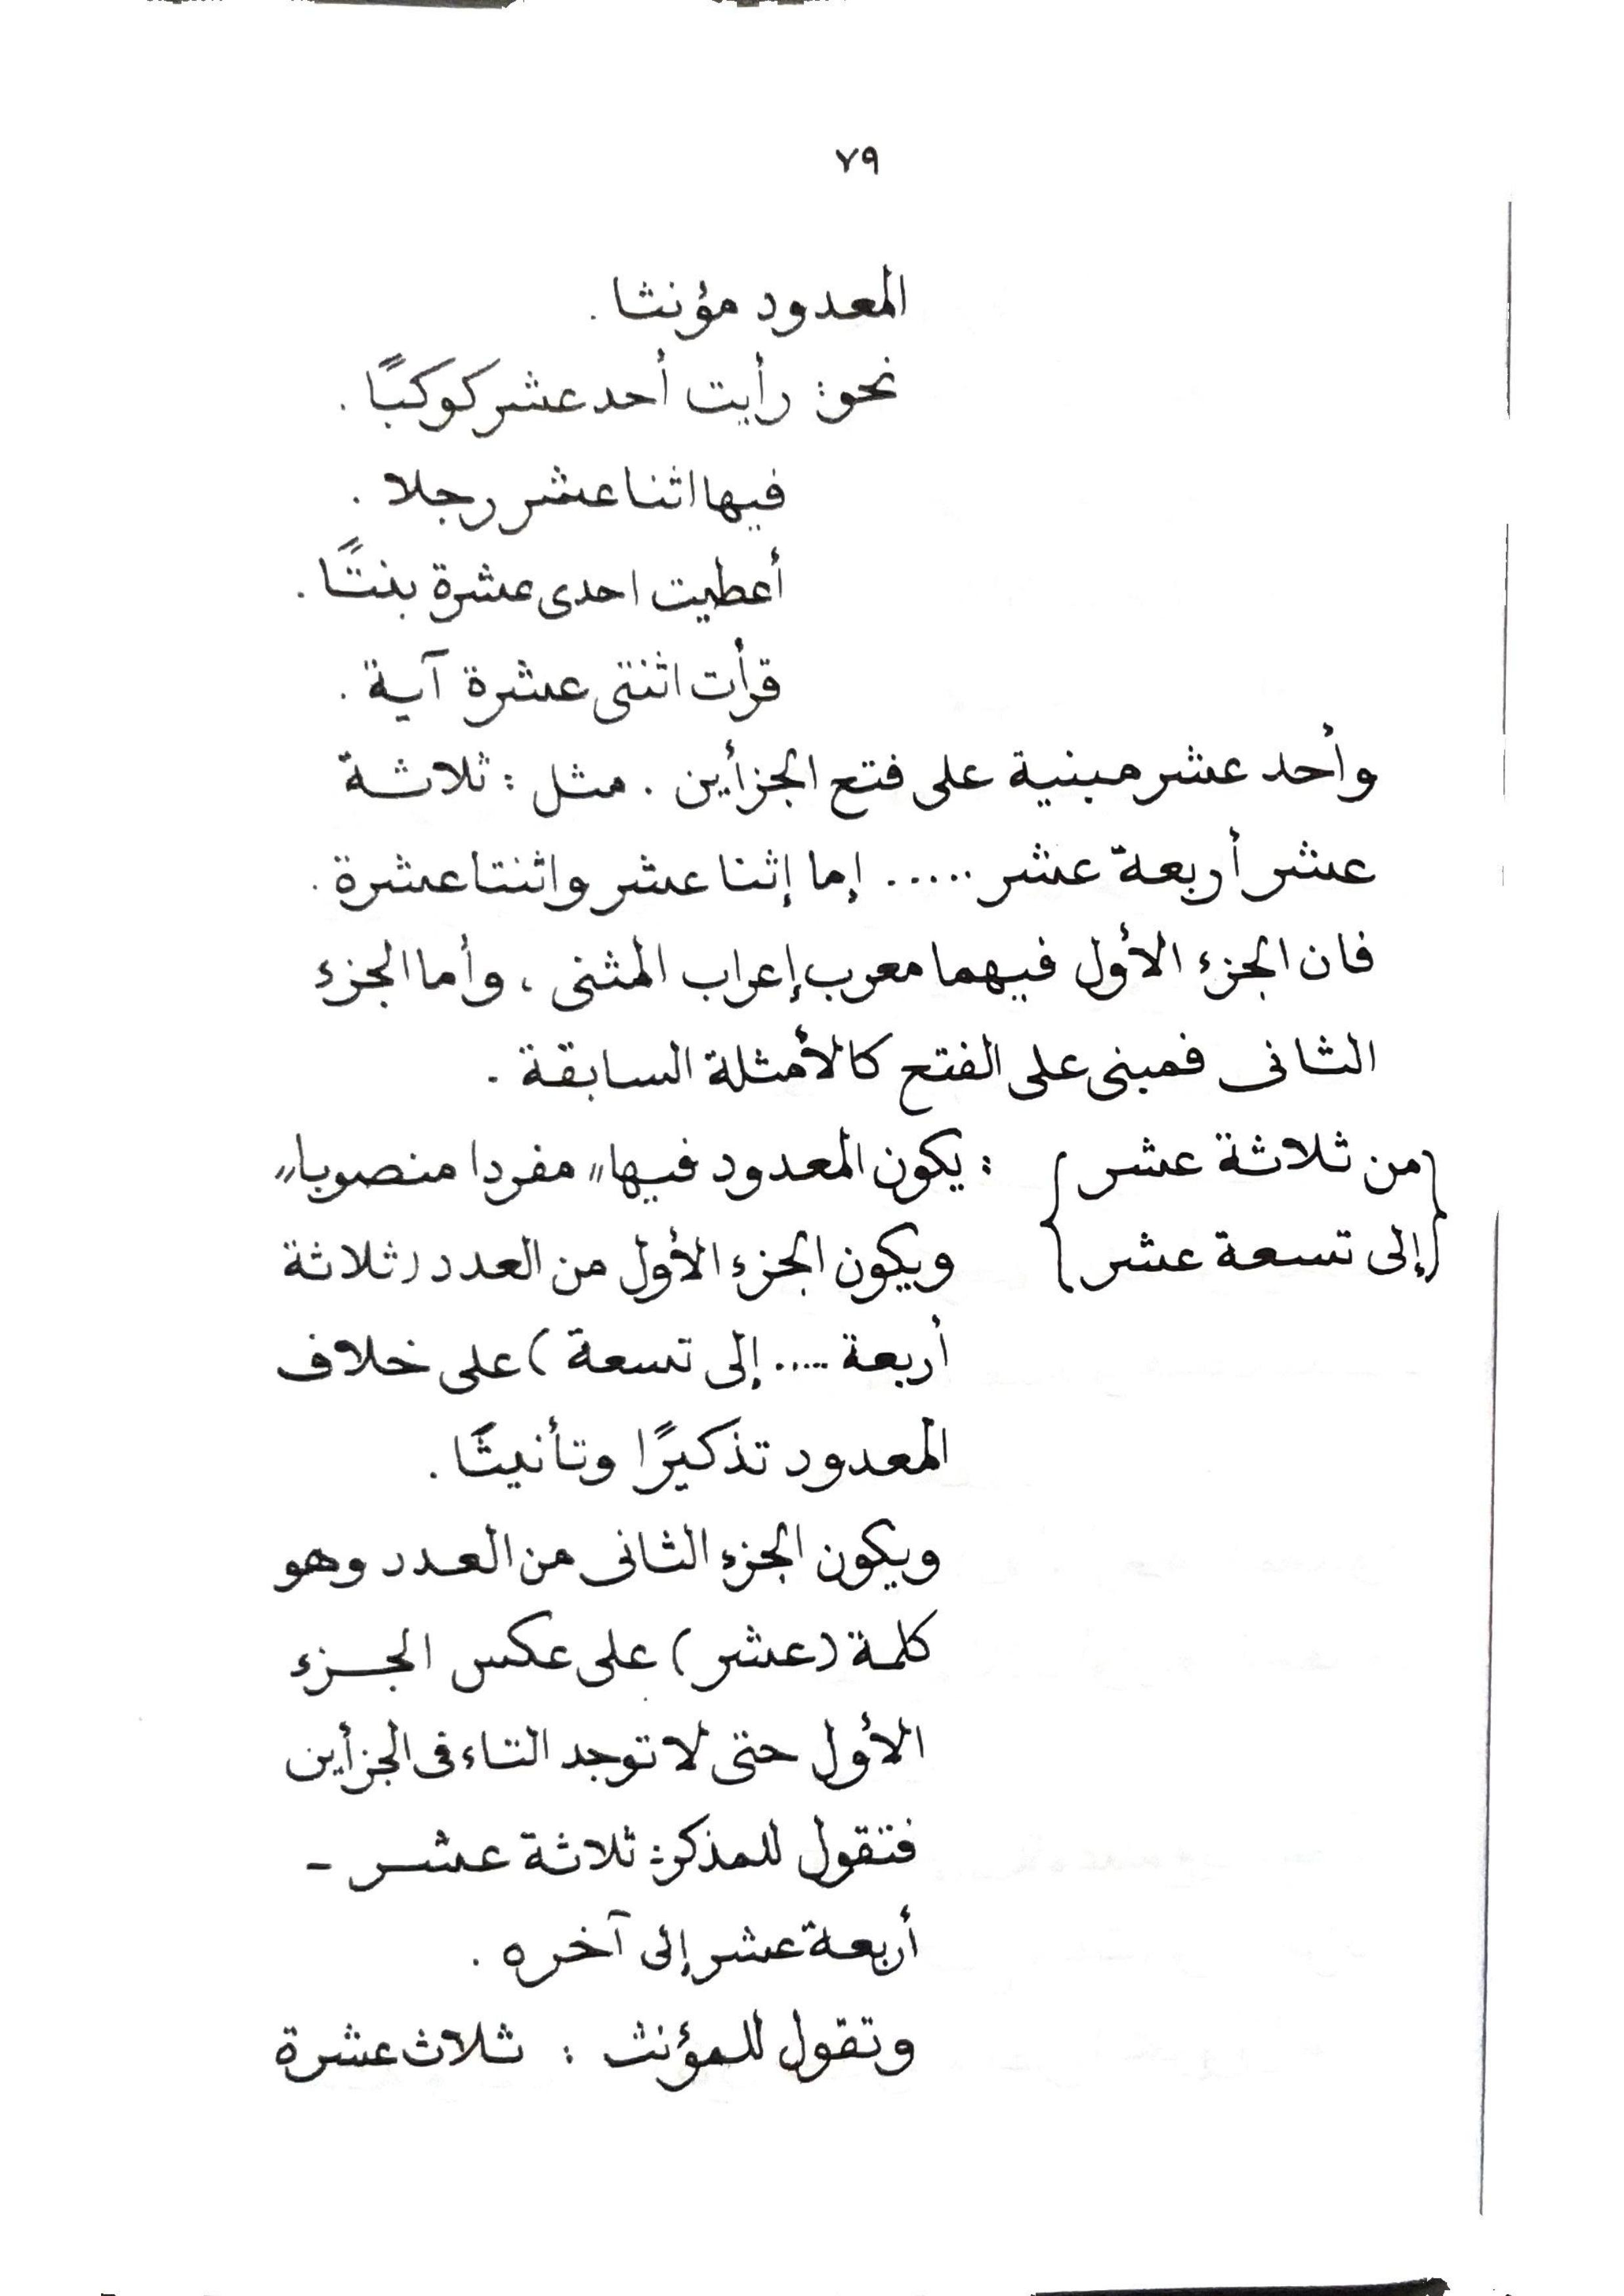 ٧٩
المعدود مؤنثا .
نحو: رأيت أحد عشر كوكبًا .
فيها اثنا عشر رجلا .
أعطيت احدى عشرة بنتًا .
قرأت اثنتى عشرة آية .
وأحد عشر مبنية على فتح الجزأين . مثل : ثلاثة
عشر أربعة عشر ..... إما إثنا عشر واثنتا عشرة .
فان الجزء الأول فيهما معرب إعراب المثنى ، وأما الجزء
الثانى فمبنى على الفتح كالأمثلة السابقة .
{من ثلاثة عشر} : يكون المعدود فيها " مفردا منصوبا "
{إلى تسعة عشر} ويكون الجزء الأول من العدد (ثلاثة
أربعة ..... إلى تسعة ) على خلاف
المعدود تذكيرًا وتأنيثًا .
ويكون الجزء الثانى من العدد وهو
كلمة (عشر) على عكس الجزء
الأول حتى لا توجد التاء فى الجزأين
فتقول للمذكر: ثلاثة عشر -
أربعة عشر إلى آخره .
وتقول للمؤنث : ثلاث عشرة